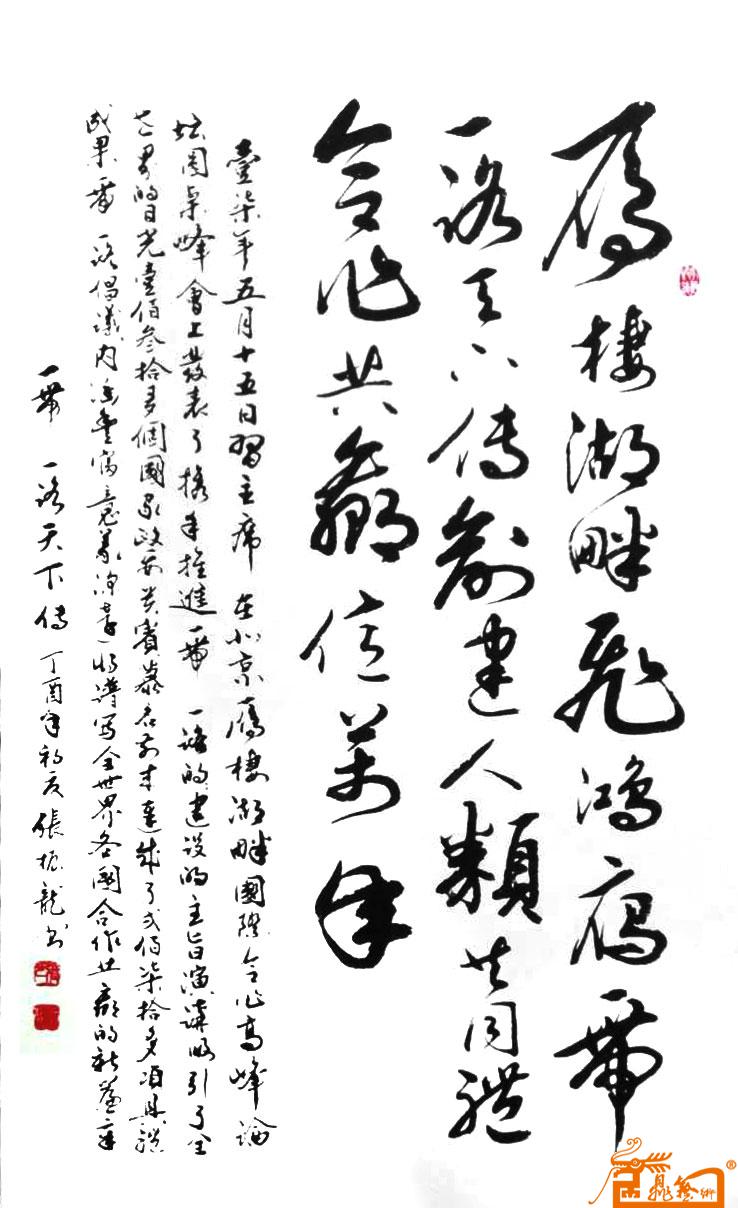 雁棲湖畔飛鴻雁一帶
一路天下傳創建人類共同體
合作共贏萬年
壹柒年五月十五日習主席 在北京雁棲湖畔國際合作高峰論
壇圓桌峰會上發表了攜手推進一帶 一路的建設的主旨演講吸引了全
世界的目光壹佰叁拾多個國家政要貴賓慕名前來達成了弍佰柒拾多項具體
成果一帶 一路倡議內涵豐富意義深遠將譜写全世界各國合作共贏的新篇章
一帶 一路天下傳 丁酉年初夏張振龍书